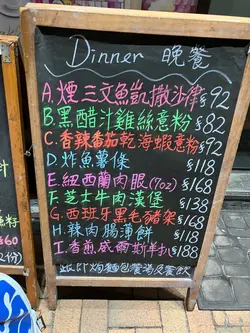 Dinner 晚餐
A.煙三文魚凱撒沙律 $92
B.黑醋汁雞絲意粉 $82
C.香辣番茄乾海蝦意粉 $92
D.炸魚薯條 $118
E.紐西蘭肉眼(7oz) $168
F.芝士牛肉漢堡 $138
G.西班牙黑毛豬架 $168
H.辣肉腸薄餅 $118
I.香煎威爾斯羊扒 $188
包餐湯及餐飲
$60
2位)